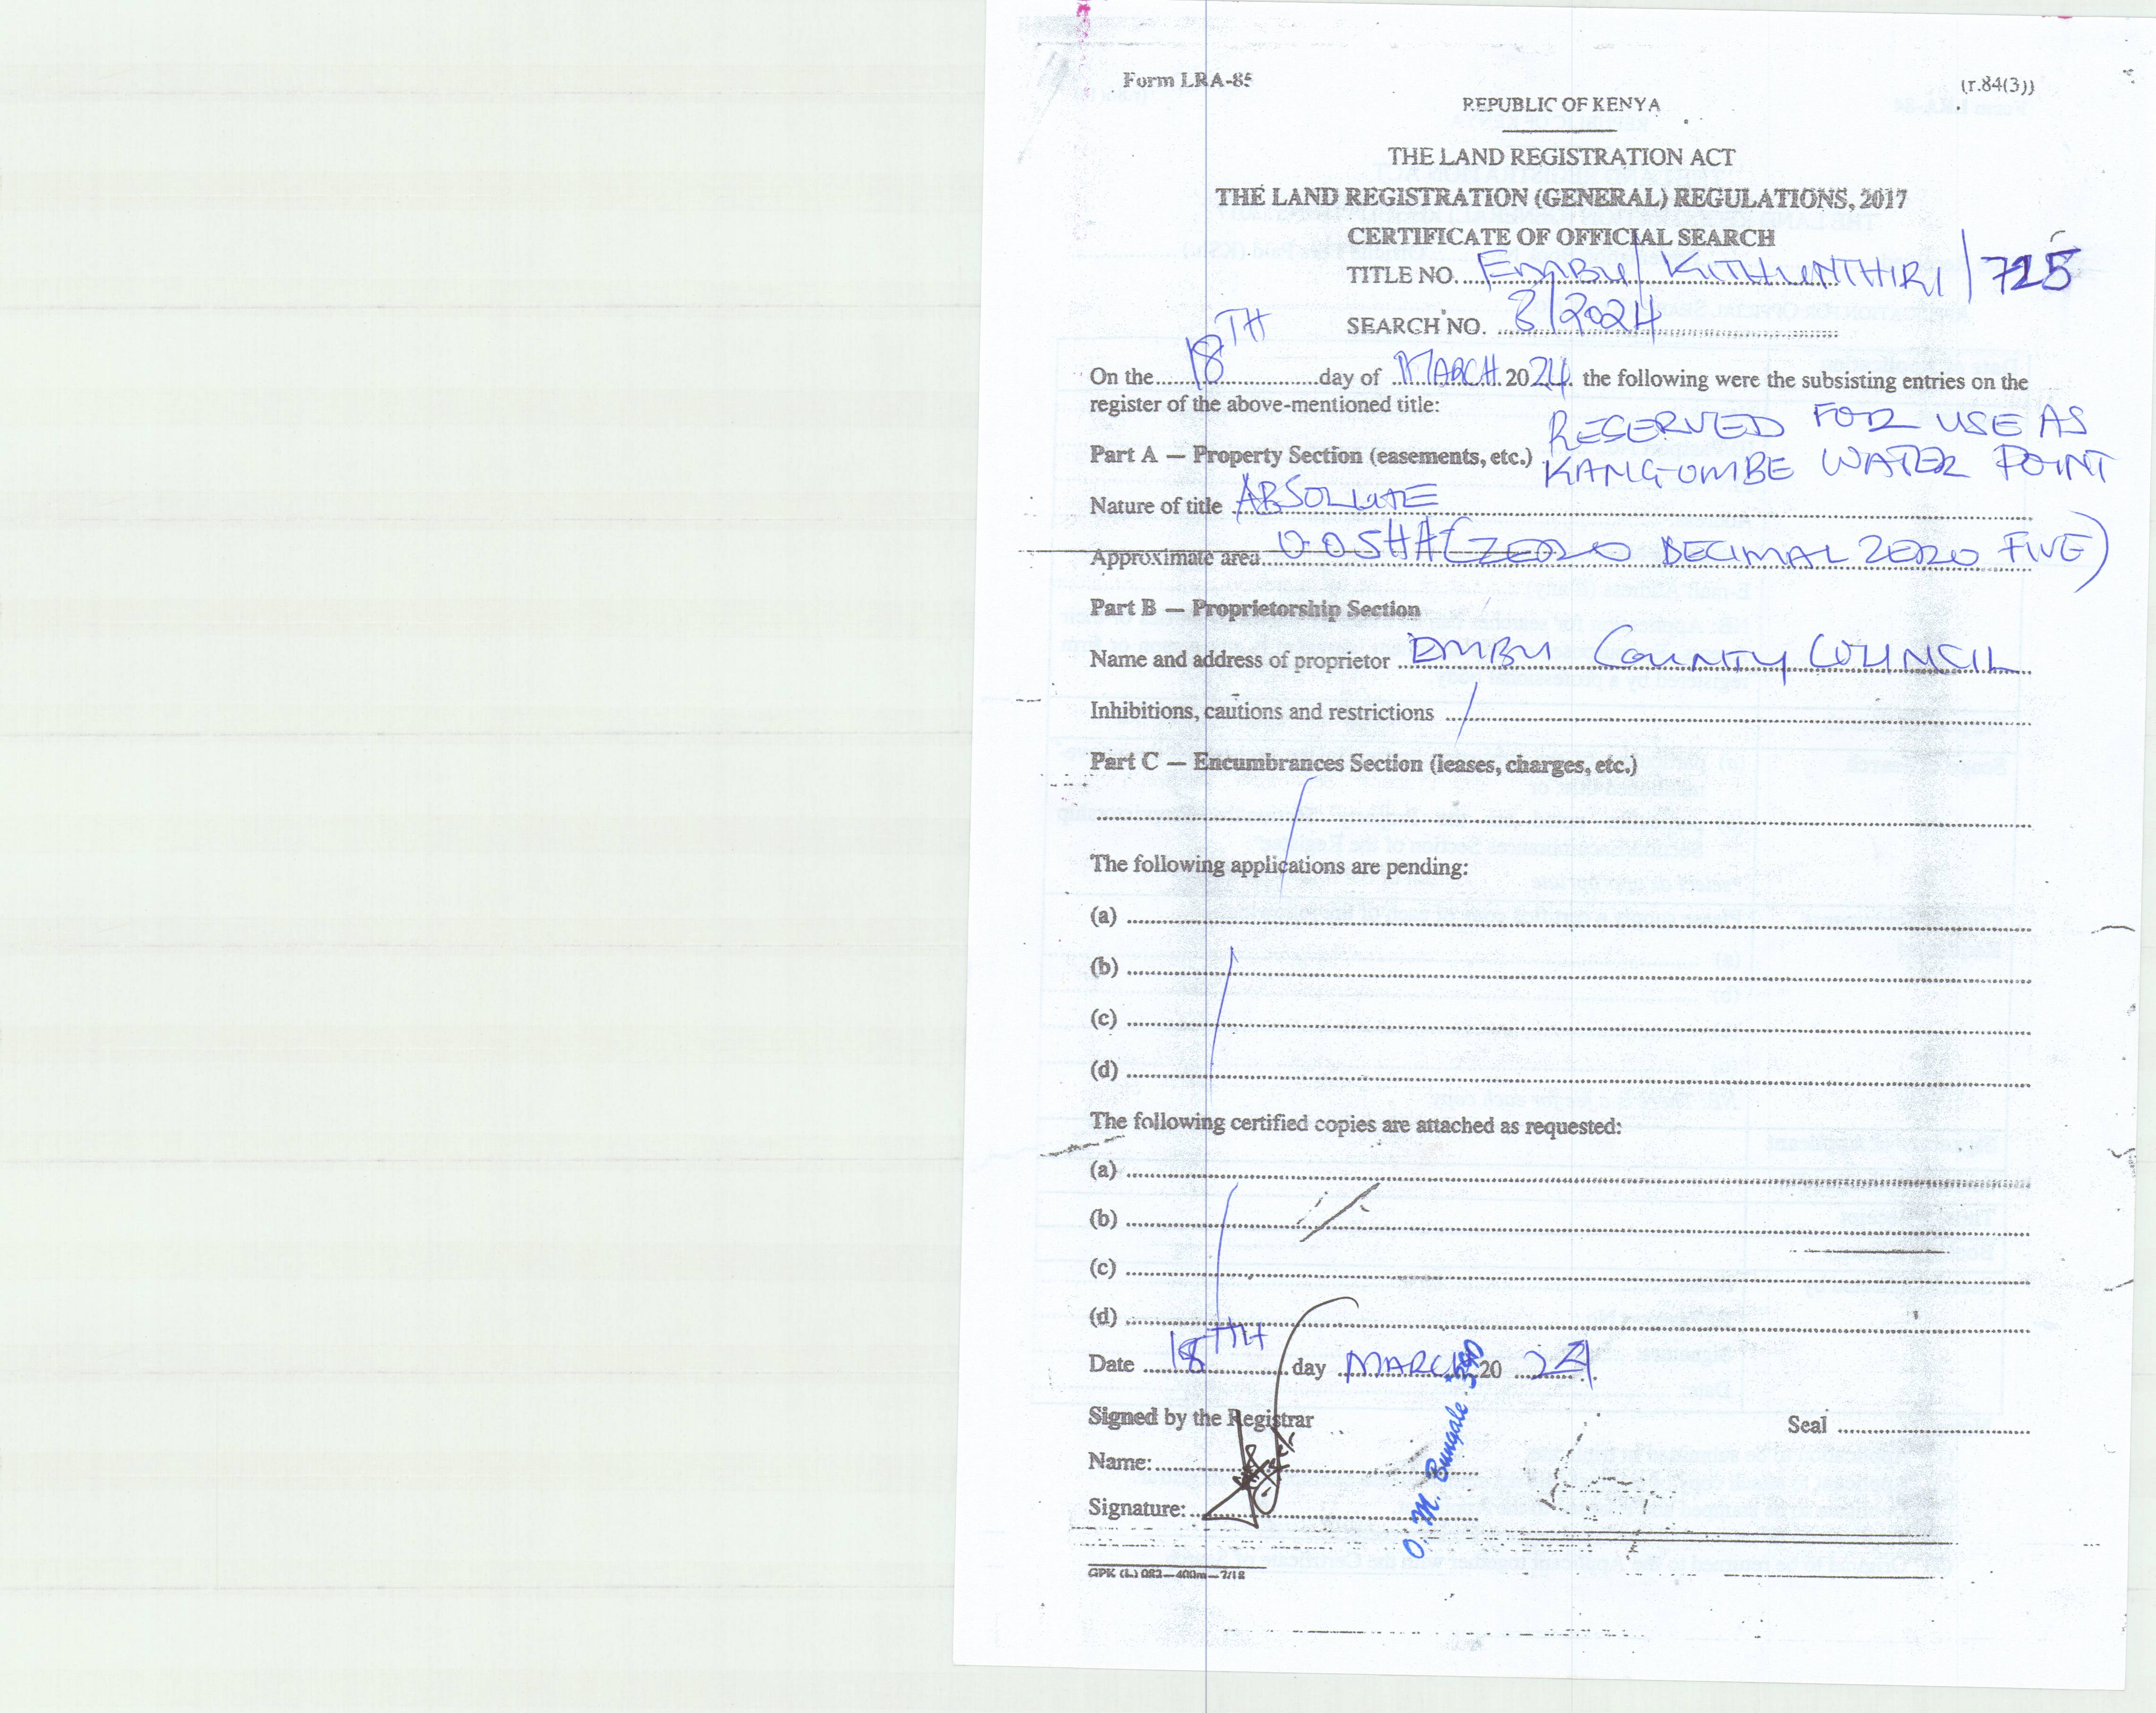 Form LRA-85
(r.84(3))
REPUBLIC OF KENYA
THE LAND REGISTRATION ACT
THE LAND REGISTRATION (GENERAL) REGULATIONS, 2017
CERTIFICATE OF OFFICIAL SEARCH
TITLE NO. EMBU/ KITHUNTHIRI/725
SEARCH NO. 8/2024
On the 18TH day of MARCH 2024 the following were the subsisting entries on the
register of the above-mentioned title:
RESERVED FOR USE AS
Part A — Property Section (easements, etc.) KANGOMBE WATER POINT
Nature of title ABSOLUTE
Approximate area 0.05HA (ZERO DECIMAL ZERO FIVE)
Part B — Proprietorship Section
Name and address of proprietor EMBU COUNTY COUNCIL
Inhibitions, cautions and restrictions /
Part C — Encumbrances Section (leases, charges, etc.)
The following applications are pending:
(a)
(b)
(c)
(d)
The following certified copies are attached as requested:
(a)
(b)
(c)
(d)
Date 18TH day MARCH 20 24
Signed by the Registrar
Seal
Name:
Signature:
O. M. Bungale 390
GPK (L) 082—400m—7/18